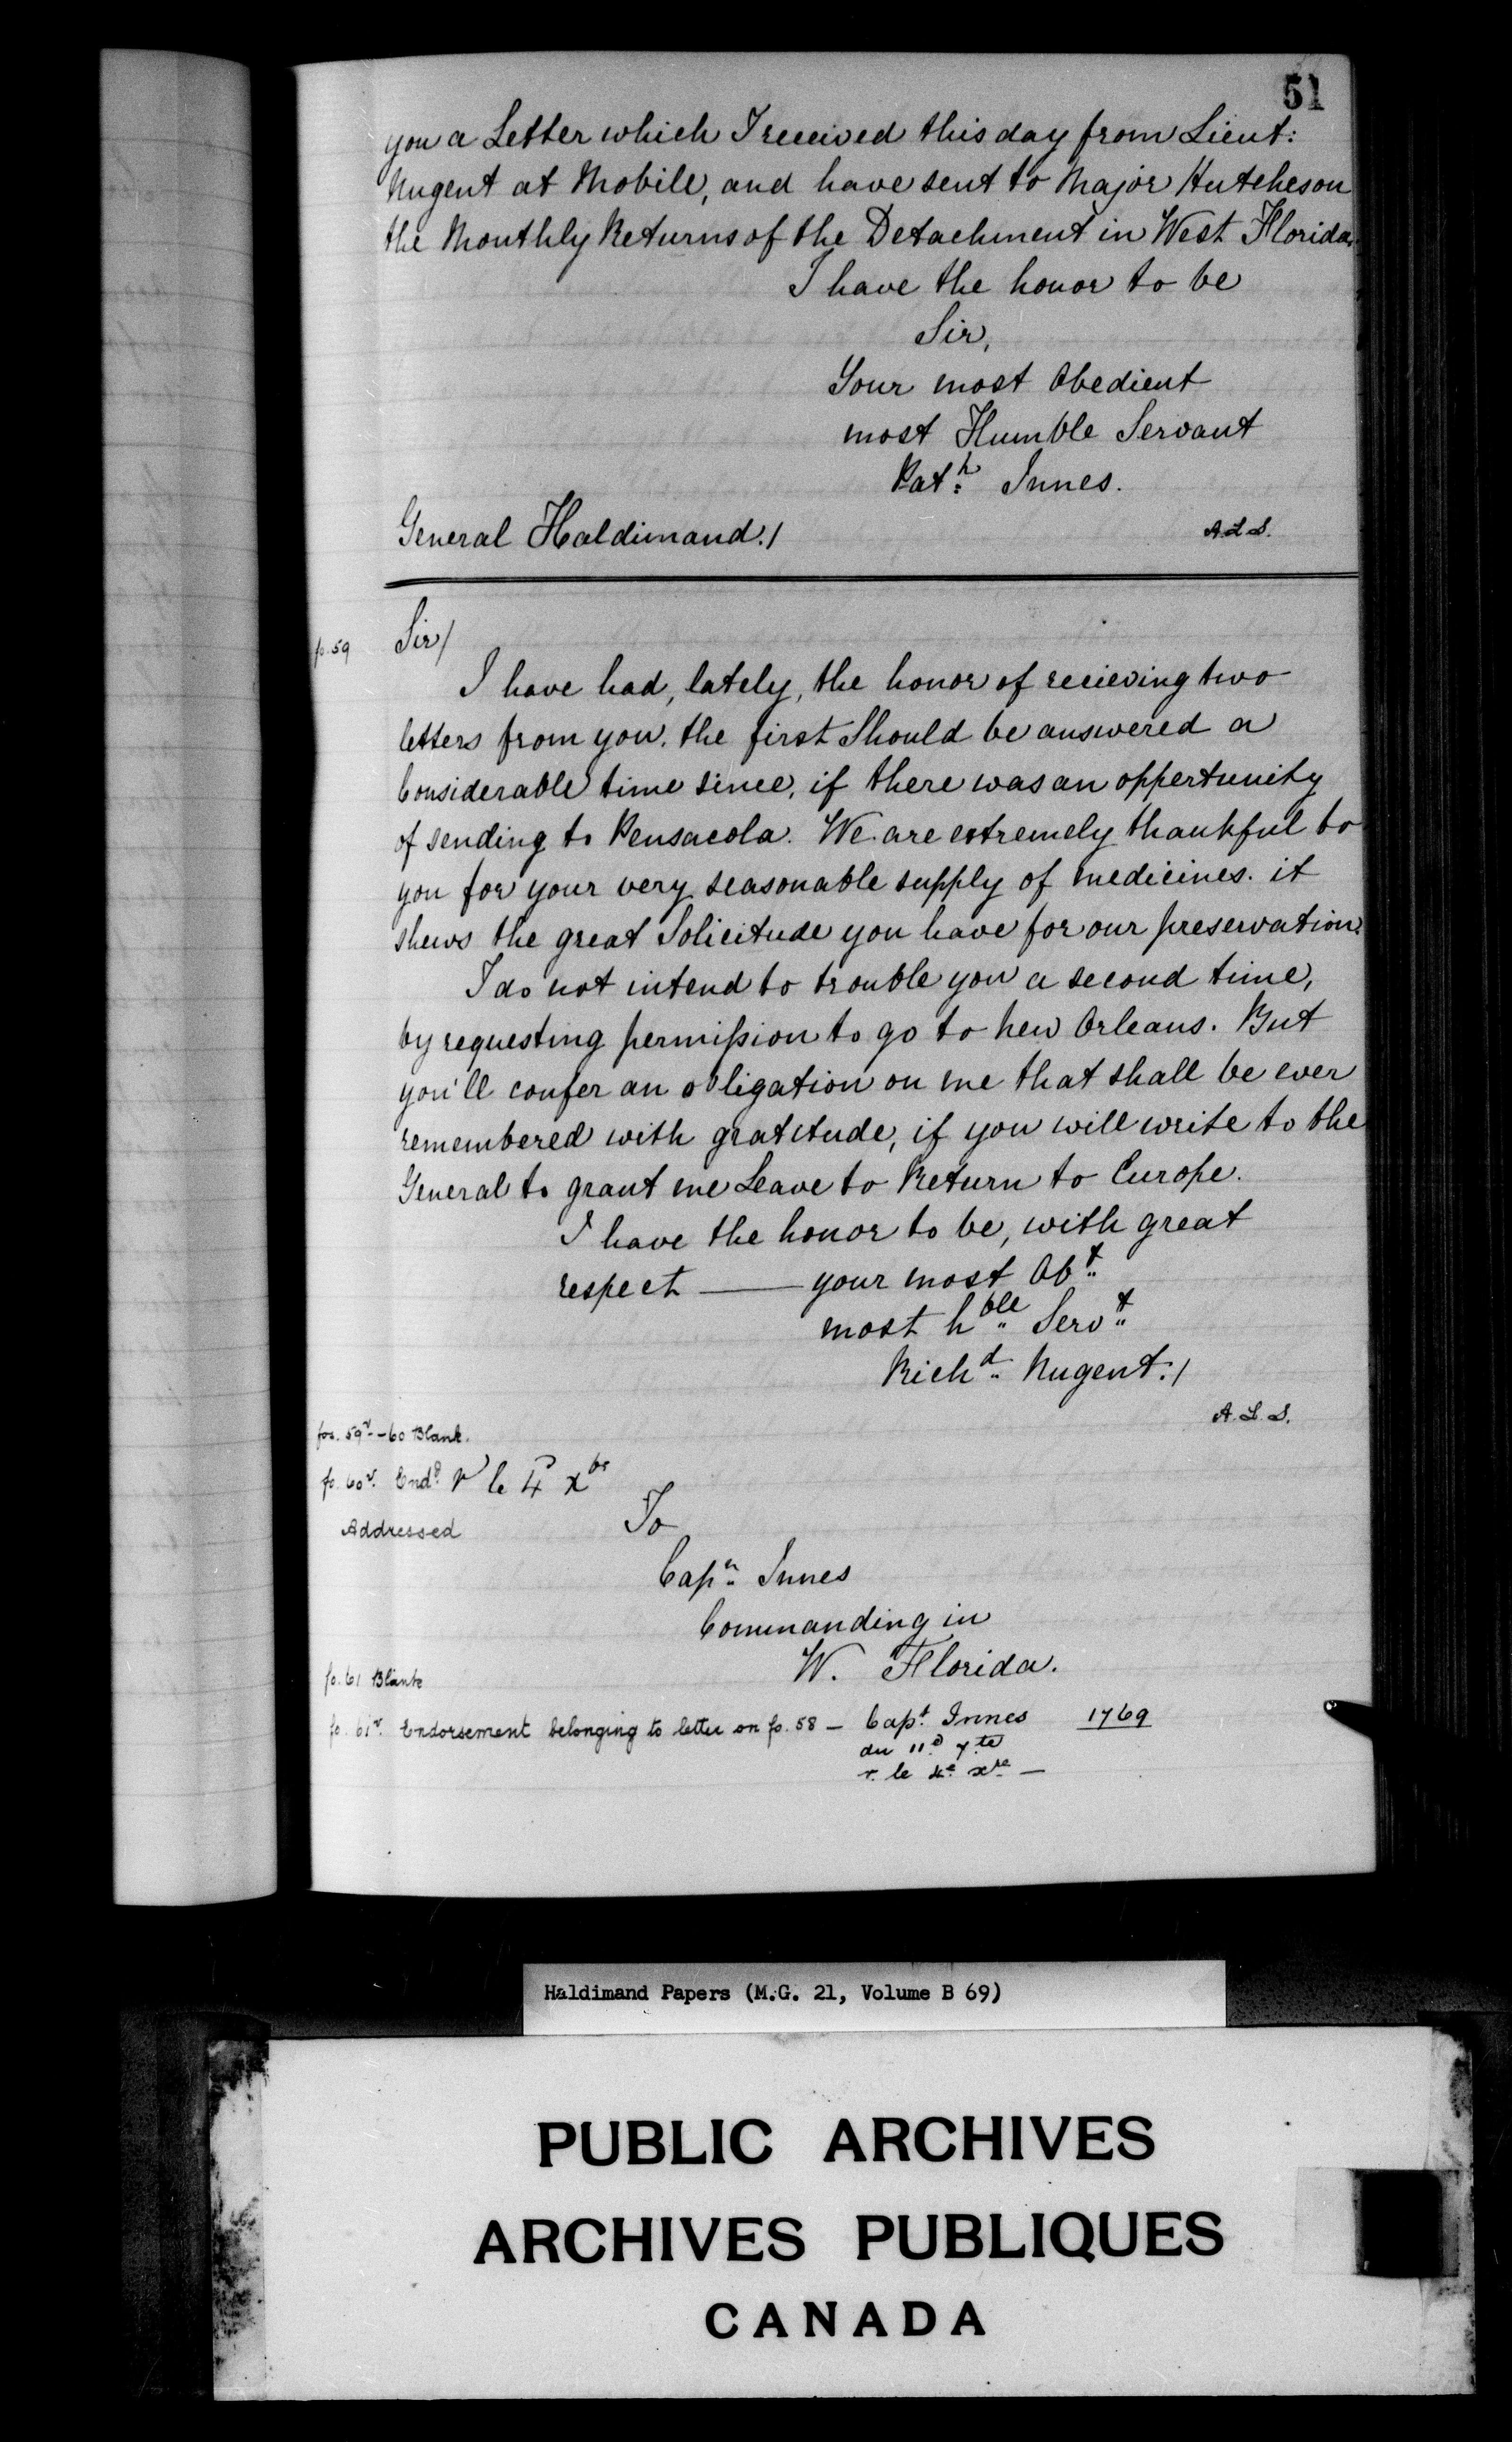 51
you a Letter which I received this day from Lieut:
Nugent at Mobile, and have sent to Major Hutcheson
the Monthly Returns of the Detachment in West Florida.
I have the honor to be
Sir,
Your most Obedient
most Humble Servant
Patk: Innes.
General Haldimand./
A.L.S.
fo. 59
Sir/
I have had, lately, the honor of recieving two
letters from you. the first Should be answered a
Considerable time since, if there was an oppertunity
of sending to Pensacola. We are extremely thankful to
you for your very seasonable supply of medicines. it
shews the great Solicitude you have for our preservation.
I do not intend to trouble you a second time,
by requesting permission to go to new Orleans. But
you'll confer an obligation on me that shall be ever
remembered with gratitude, if you will write to the
General to grant me Leave to Return to Europe.
I have the honor to be, with great
respect — your most Obt
most hble Servt
Richd Nugent:/
A.L.S.
fos. 59v - 60 Blank.
fo. 60v. Endd r le 4 xbr
Addressed To
Capn Innes
Commanding in
W. Florida.
fo. 61 Blank
fo. 61v. Endorsement belonging to letter on fo. 58 — Capt. Innes 1769
du 11e 7te
r. le 4e xre —
Haldimand Papers (M.G. 21, Volume B 69)
PUBLIC ARCHIVES
ARCHIVES PUBLIQUES
CANADA